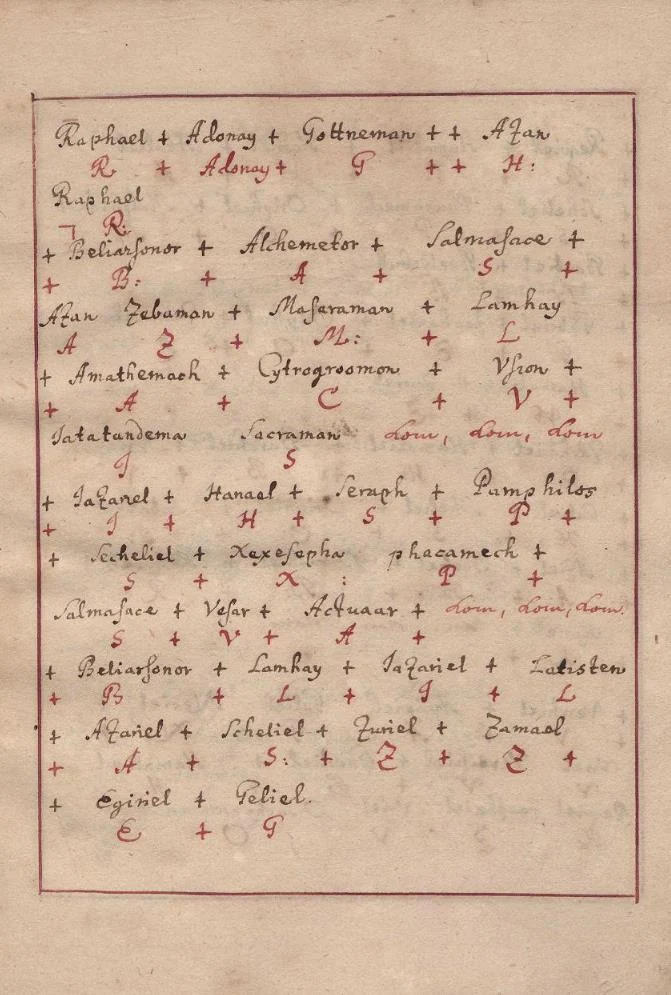 Raphael + Adonay + Gottneman + + Azan
R + Adonay + G + + H:
Raphael
R:
+ Beliarsonor + Alchemetor + Salmasace +
+ B: + A + S +
Azan Zebaman + Masaraman + Lamhay
A Z + M: + L
+ Amathemach + Cytrogroomon + Vsion +
+ A + C + V +
Iatatandema Sacraman dom, dom, dom
I S
+ Iazariel + Hanael + Seraph + Pamphilos
+ I + H + S + P +
+ Secheliel + Xexesepha phacamech +
S + X : P +
Salmasace + Vesar + Actuaar + dom, dom, dom.
S + V + A +
+ Beliarsonor + Lamhay + Iazariel + Latisten
+ B + L + I + L
+ Azariel + Scheliel + Zuriel + Zamael
+ A + S: + Z + Z +
+ Eginiel + Geliel.
E + G